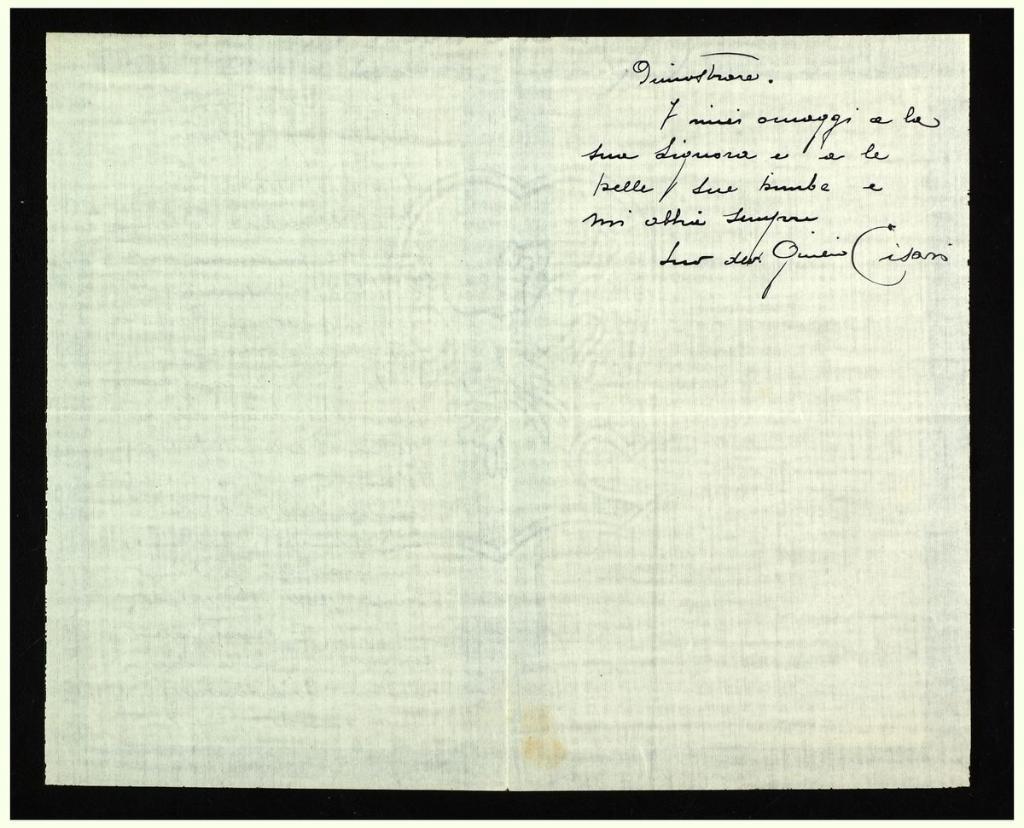 dimostrare.
I miei omaggi a la
sua Signora e a le
belle sue bimbe e
mi abbia sempre
Suo dev Giulio Cisari